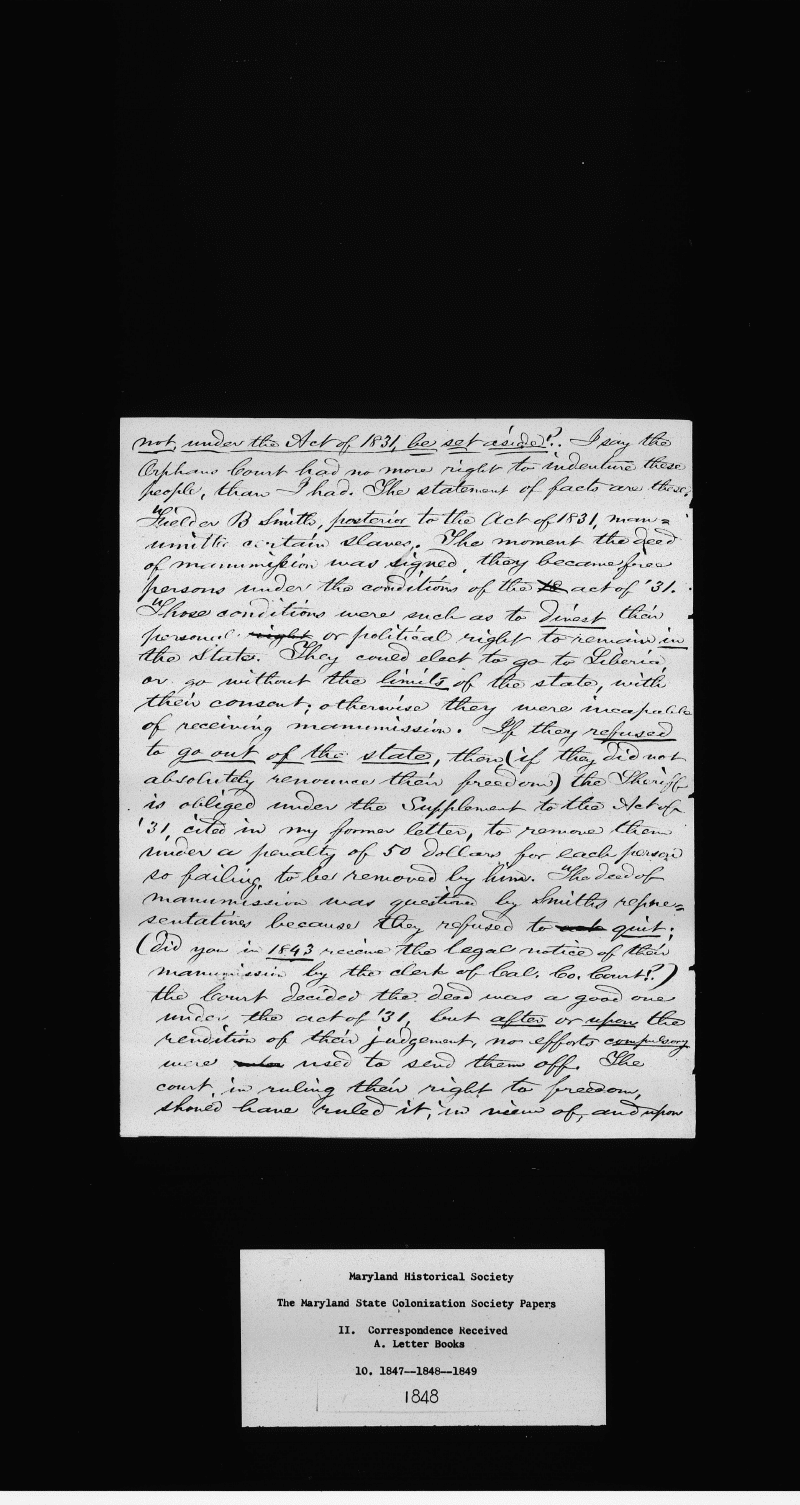 not, under the Act of 1831, be set aside?. I say the
Orphans Court had no more right to indenture these
people, than I had. The statement of facts are these;
"Fielder B Smith, posterior to the Act of 1831, man=
umitts certain slaves. The moment the deed
of manumission was signed, they became free
persons under the conditions of the act of '31.
"Those conditions were such as to divest their
personal right or political right to remain in
the State. They could elect to go to Liberia,
or go without the limits of the state, with
their consent; otherwise they were incapable
of receiving manumission. If they refused
to go out of the state, then (if they did not
absolutely renounce their freedom) the Sheriff
is obliged under the Supplement to the Act of
'31, cited in my former letter, to remove them
under a penalty of 50 dollars for each person
so failing to be removed by him. "The deed of
manumission was questioned by Smiths repre=
sentatives because they refused to quit;
(did you in 1843 receive the legal notice of their
manumission by the clerk of Cal. Co. Court?)
the Court decided the deed was a good one
under the act of '31, but after or upon the
rendition of their judgement, no efforts compulsory
were used to send them off. The
court in ruling their right to freedom,
should have ruled it, in view of, and upon
Maryland Historical Society
The Maryland State Colonization Society Papers
II. Correspondence Received
A. Letter Books
10. 1847--1848--1849
1848